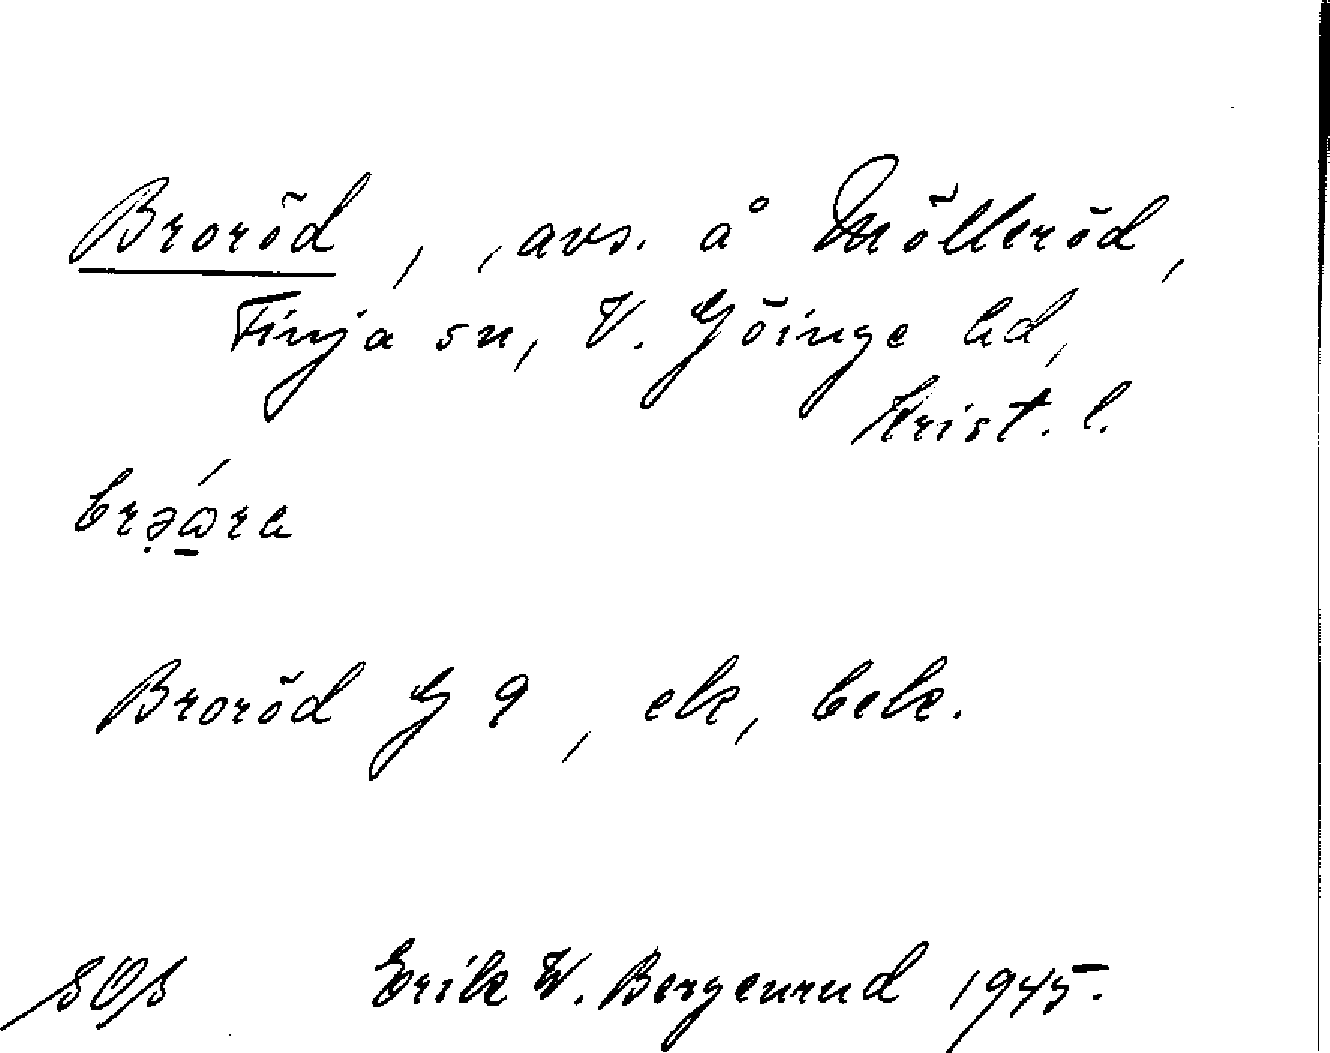 Broröd, , avs. å Mölleröd,
Finja sn, V. Göinge hd,
Krist. l.
Broröd G 9, ek, bek.
SOS Erik W. Bergenrud 1945.